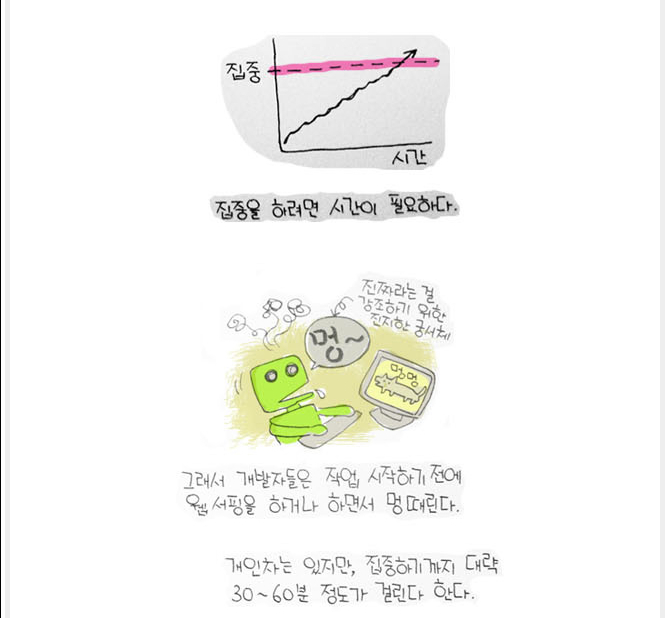 집중
시간
집중을 하려면 시간이 필요하다.
진짜라는 걸
강조하기 위한
진지한 궁서체
멍~
멍멍
그래서 개발자들은 작업 시작하기 전에
웹서핑을 하거나 하면서 멍때린다.
개인차는 있지만, 집중하기까지 대략
30~60분 정도가 걸린다 한다.